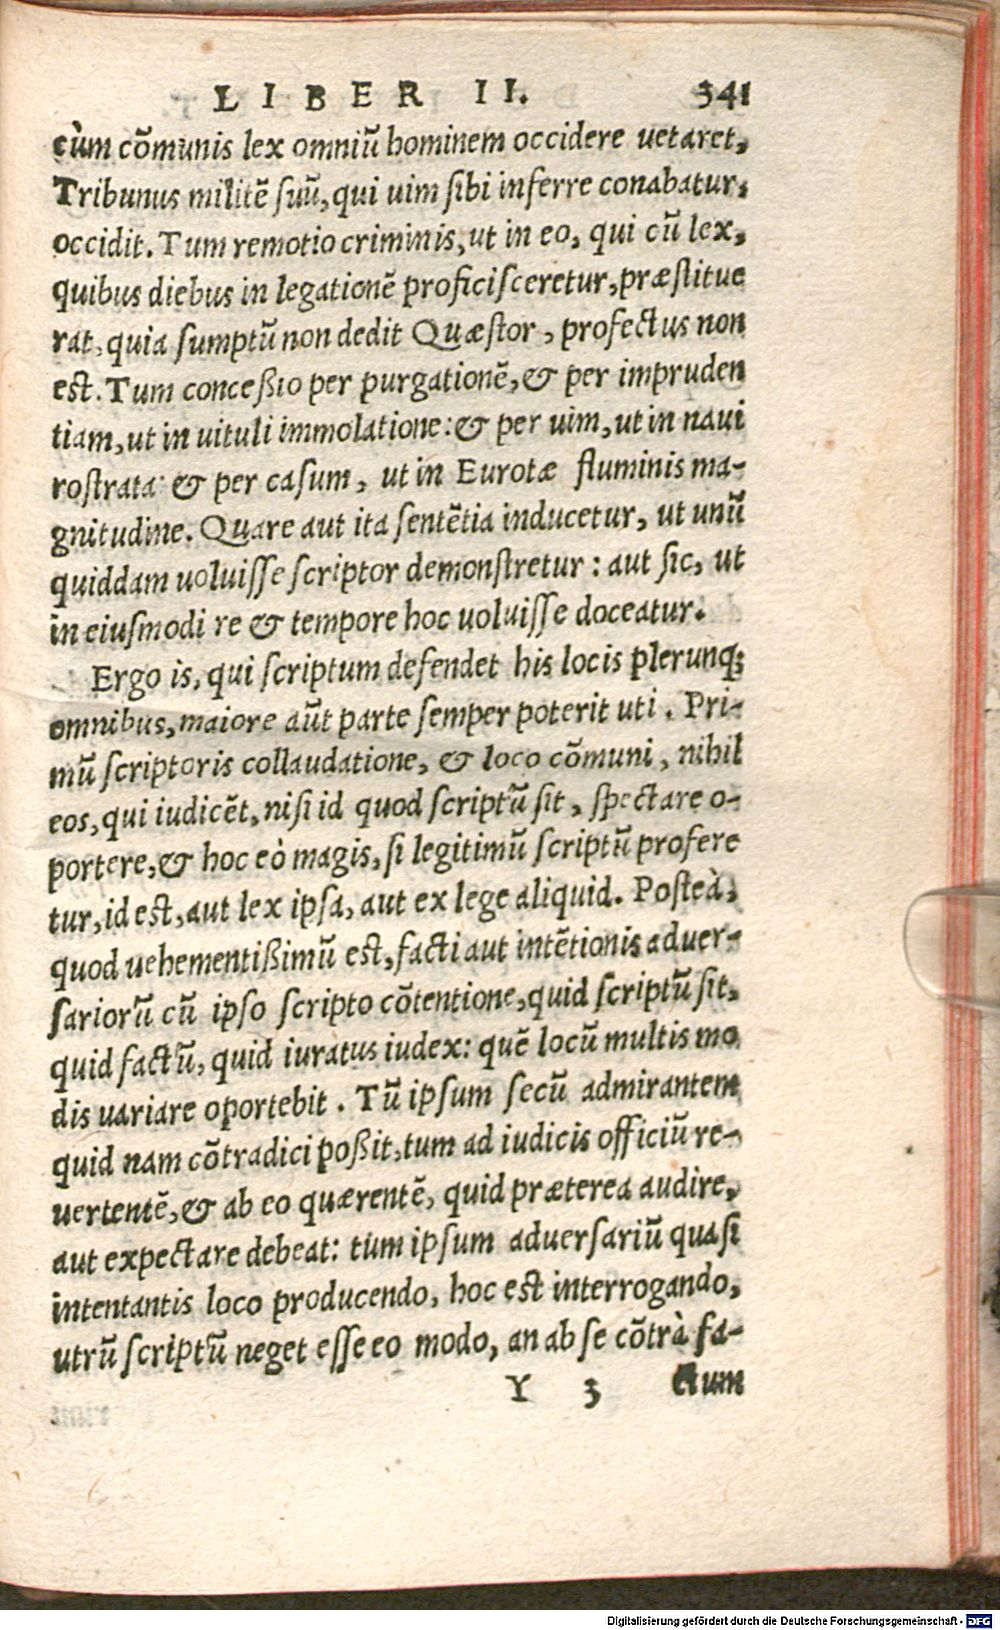 LIBER II. 341
cùm cõmunis lex omniũ hominem occidere uetaret,
Tribunus militẽ suũ, qui uim sibi inferre conabatur,
occidit. Tum remotio criminis, ut in eo, qui cũ lex,
quibus diebus in legationẽ proficisceretur, præstitue
rat, quia sumptũ non dedit Quæstor, profectus non
est. Tum conceßio per purgationẽ, & per impruden
tiam, ut in uituli immolatione: & per uim, ut in naui
rostrata: & per casum, ut in Eurotæ fluminis ma-
gnitudine. Quare aut ita sentẽtia inducetur, ut unũ
quiddam uoluisse scriptor demonstretur: aut sic, ut
in eiusmodi re & tempore hoc uoluisse doceatur.
Ergo is, qui scriptum defendet his locis plerunq;
omnibus, maiore aũt parte semper poterit uti. Pri-
mũ scriptoris collaudatione, & loco cõmuni, nihil
eos, qui iudicẽt, nisi id quod scriptũ sit, spectare o-
portere, & hoc eò magis, si legitimũ scriptũ profere
tur, id est, aut lex ipsa, aut ex lege aliquid. Posteà,
quod uehementißimũ est, facti aut intẽtionis aduer-
sariorũ cũ ipso scripto cõtentione, quid scriptũ sit,
quid factũ, quid iuratus iudex: quẽ locũ multis mo
dis uariare oportebit. Tũ ipsum secũ admirantem
quid nam cõtradici poßit, tum ad iudicis officiũ re-
uertentẽ, & ab eo quærentẽ, quid præterea audire,
aut expectare debeat: tum ipsum aduersariũ quasi
intentantis loco producendo, hoc est interrogando,
utrũ scriptũ neget esse eo modo, an ab se cõtrà fa-
Y 3 ctum
Digitalisierung gefördert durch die Deutsche Forschungsgemeinschaft - DFG